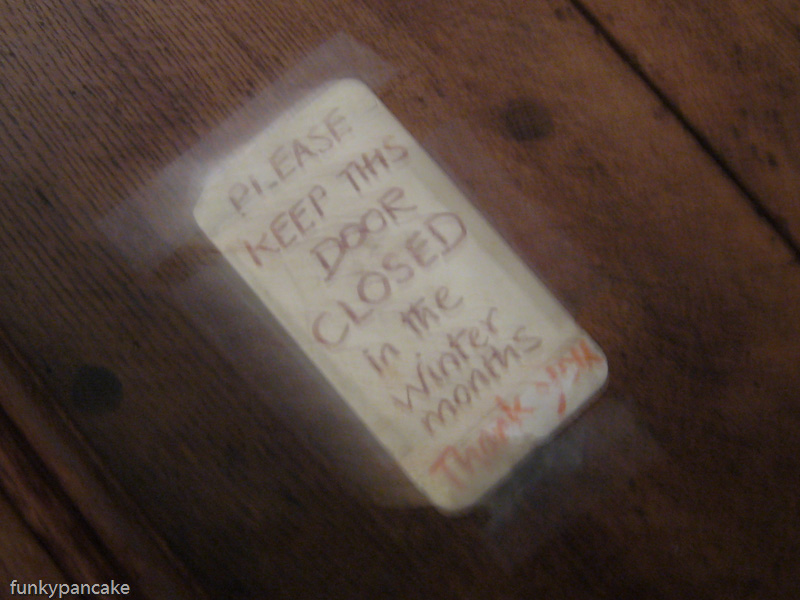 PLEASE
KEEP THIS
DOOR
CLOSED
in the
Winter
months
Thank you
funkypancake